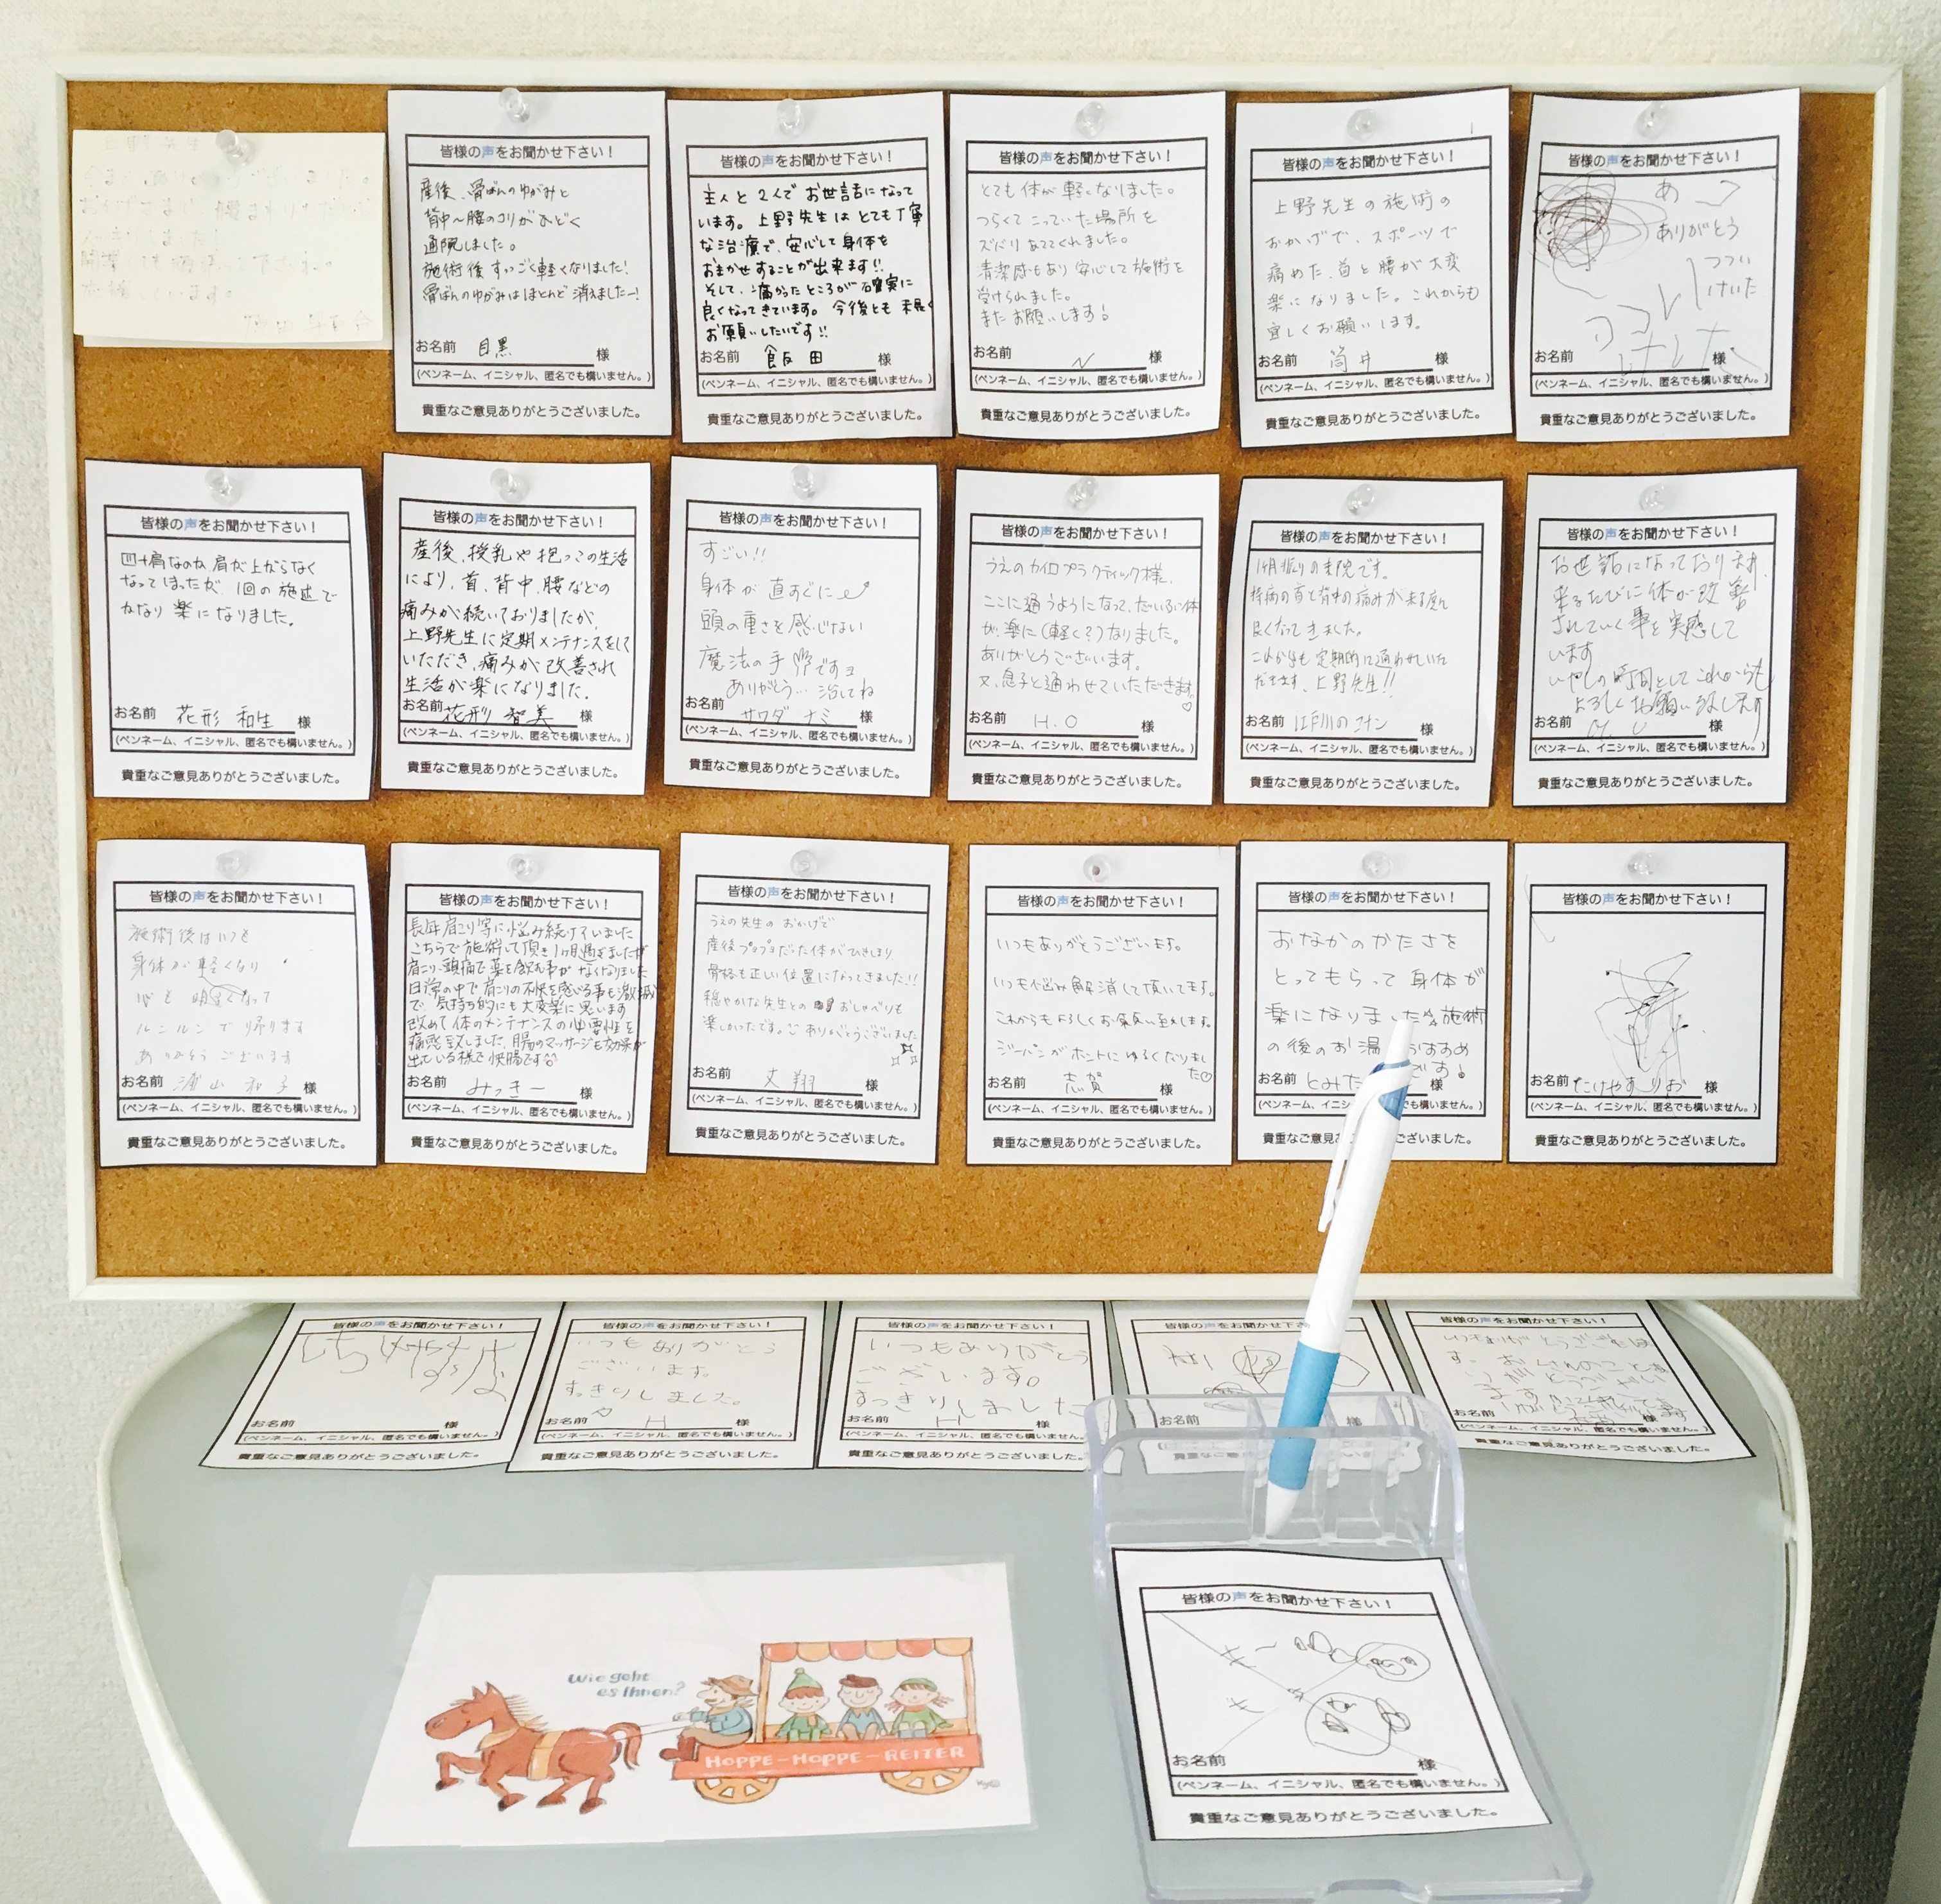 皆様の声をお聞かせ下さい！
産後、骨ばんのゆがみと
背中～腰のコリがひどく
通院しました。
施術後すっごく軽くなりました！
骨ばんのゆがみはほとんど消えましたー！
お名前 目黒 様
(ペンネーム、イニシャル、匿名でも構いません。)
貴重なご意見ありがとうございました。
皆様の声をお聞かせ下さい！
主人と2人でお世話になって
います。上野先生はとても丁寧
な治療で、安心して身体を
おまかせすることが出来ます!!
そして、痛かったところが確実に
良くなってきています。今後とも末長く
お願いしたいです!!
お名前 飯田 様
(ペンネーム、イニシャル、匿名でも構いません。)
貴重なご意見ありがとうございました。
皆様の声をお聞かせ下さい！
とても体が軽くなりました。
つらくてこっていた場所を
ズバリあててくれました。
清潔感もあり安心して施術を
受けられました。
またお願いします！
お名前 N 様
(ペンネーム、イニシャル、匿名でも構いません。)
貴重なご意見ありがとうございました。
皆様の声をお聞かせ下さい！
上野先生の施術の
おかげで、スポーツで
痛めた、首と腰が大変
楽になりました。これからも
宜しくお願いします。
お名前 筒井 様
(ペンネーム、イニシャル、匿名でも構いません。)
貴重なご意見ありがとうございました。
皆様の声をお聞かせ下さい！
ありがとう
お名前 様
(ペンネーム、イニシャル、匿名でも構いません。)
貴重なご意見ありがとうございました。
皆様の声をお聞かせ下さい！
四十肩なのか肩が上がらなく
なってしまったが、1回の施術で
かなり楽になりました。
お名前 花形 和生 様
(ペンネーム、イニシャル、匿名でも構いません。)
貴重なご意見ありがとうございました。
皆様の声をお聞かせ下さい！
産後、授乳や抱っこの生活
により、首、背中、腰などの
痛みが続いておりましたが、
上野先生に定期メンテナンスをして
いただき、痛みが改善され
生活が楽になりました。
お名前 花形 智美 様
(ペンネーム、イニシャル、匿名でも構いません。)
貴重なご意見ありがとうございました。
皆様の声をお聞かせ下さい！
すごい!!
身体が直すぐに
頭の重さを感じない
魔法の手ですョ
ありがとう…治してね
お名前 サワダ ナミ 様
(ペンネーム、イニシャル、匿名でも構いません。)
貴重なご意見ありがとうございました。
皆様の声をお聞かせ下さい！
うえのカイロプラクティック様、
ここに通うようになって、だいぶ体
が、楽に(軽く?)なりました。
ありがとうございます。
又、息子と通わせていただきます。♡
お名前 H.O 様
(ペンネーム、イニシャル、匿名でも構いません。)
貴重なご意見ありがとうございました。
皆様の声をお聞かせ下さい！
1ヶ月振りの来院です。
持病の首と背中の痛みが来る度に
良くなってきました。
これからも定期的に通わせていた
だきます、上野先生!!
お名前 江戸川のコナン 様
(ペンネーム、イニシャル、匿名でも構いません。)
貴重なご意見ありがとうございました。
皆様の声をお聞かせ下さい！
お世話になっております。
来るたびに体が改善
されていく事を実感して
います
いやしの時間としてこれからも
よろしくお願い致します
お名前 様
(ペンネーム、イニシャル、匿名でも構いません。)
貴重なご意見ありがとうございました。
皆様の声をお聞かせ下さい！
施術後はいつも
身体が軽くなり
心も明るくなって
ルンルンで帰ります
ありがとうございます
お名前 様
(ペンネーム、イニシャル、匿名でも構いません。)
貴重なご意見ありがとうございました。
皆様の声をお聞かせ下さい！
長年肩こり等に悩み続けていました
こちらで施術して頂き1ヶ月過ぎましたが
肩こり、頭痛で薬を飲む事がなくなりました
日常の中で肩こりの不快を感じる事も激減
で、気持ち的にも大変楽に思います
改めて体のメンテナンスの必要性を
痛感致しました、腸のマッサージも効果が
出ている様で快腸です
お名前 みっきー 様
(ペンネーム、イニシャル、匿名でも構いません。)
貴重なご意見ありがとうございました。
皆様の声をお聞かせ下さい！
うえの先生のおかげで
産後プヨプヨだった体がひきしまり、
骨格も正しい位置になってきました!!
穏やかな先生とのおしゃべりも
楽しかったです。ありがとうございました
お名前 丈翔 様
(ペンネーム、イニシャル、匿名でも構いません。)
貴重なご意見ありがとうございました。
皆様の声をお聞かせ下さい！
いつもありがとうございます。
いつも悩み解消して頂いてます。
これからもよろしくお願い致します。
ジーパンがホントにゆるくなりまし
た♡
お名前 志賀 様
(ペンネーム、イニシャル、匿名でも構いません。)
貴重なご意見ありがとうございました。
皆様の声をお聞かせ下さい！
おなかのかたさを
とってもらって身体が
楽になりました☆施術
の後のお湯おすすめ
です！
お名前 とみた 様
(ペンネーム、イニシャル、匿名でも構いません。)
貴重なご意見ありがとうございました。
皆様の声をお聞かせ下さい！
お名前 たけやす りお 様
(ペンネーム、イニシャル、匿名でも構いません。)
貴重なご意見ありがとうございました。
皆様の声をお聞かせ下さい！
お名前 様
(ペンネーム、イニシャル、匿名でも構いません。)
貴重なご意見ありがとうございました。
皆様の声をお聞かせ下さい！
いつもありがとう
ございます。
すっきりしました。
お名前 H 様
(ペンネーム、イニシャル、匿名でも構いません。)
貴重なご意見ありがとうございました。
皆様の声をお聞かせ下さい！
いつもありがとう
ございます。
すっきりしました
お名前 H 様
(ペンネーム、イニシャル、匿名でも構いません。)
貴重なご意見ありがとうございました。
皆様の声をお聞かせ下さい！
お名前 様
皆様の声をお聞かせ下さい！
お名前 様
(ペンネーム、イニシャル、匿名でも構いません。)
貴重なご意見ありがとうございました。
Wie geht
es Ihnen?
HOPPE-HOPPE-REITER
皆様の声をお聞かせ下さい！
お名前 様
(ペンネーム、イニシャル、匿名でも構いません。)
貴重なご意見ありがとうございました。